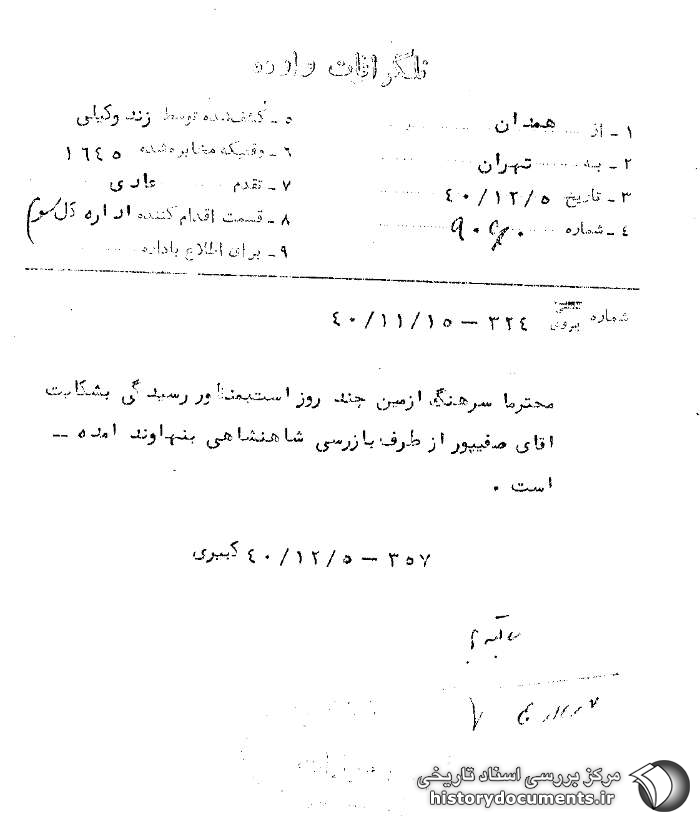 تلگرافات وارده
۱ - از همدان
۲ - به تهران
۳ - تاریخ ۴۰/۱۲/۵
۴ - شماره
۵ - کشف شده توسط زند وکیلی
۶ - وقتیکه مخابره شده ۱۶۴۵
۷ - تقدم عادی
۸ - قسمت اقدام کننده اداره کل سوم
۹ - برای اطلاع باداره
شماره پیروی ۳۲۴ - ۴۰/۱۱/۱۵
محترما سرهنگ ازمین چند روز است بمنظور رسیدگی بشکایت
اقای صفیپور از طرف بازرسی شاهنشاهی بنهاوند امده --
است .
۳۵۷ - ۴۰/۱۲/۵ کبیری
مرکز بررسی اسناد تاریخی
historydocuments.ir